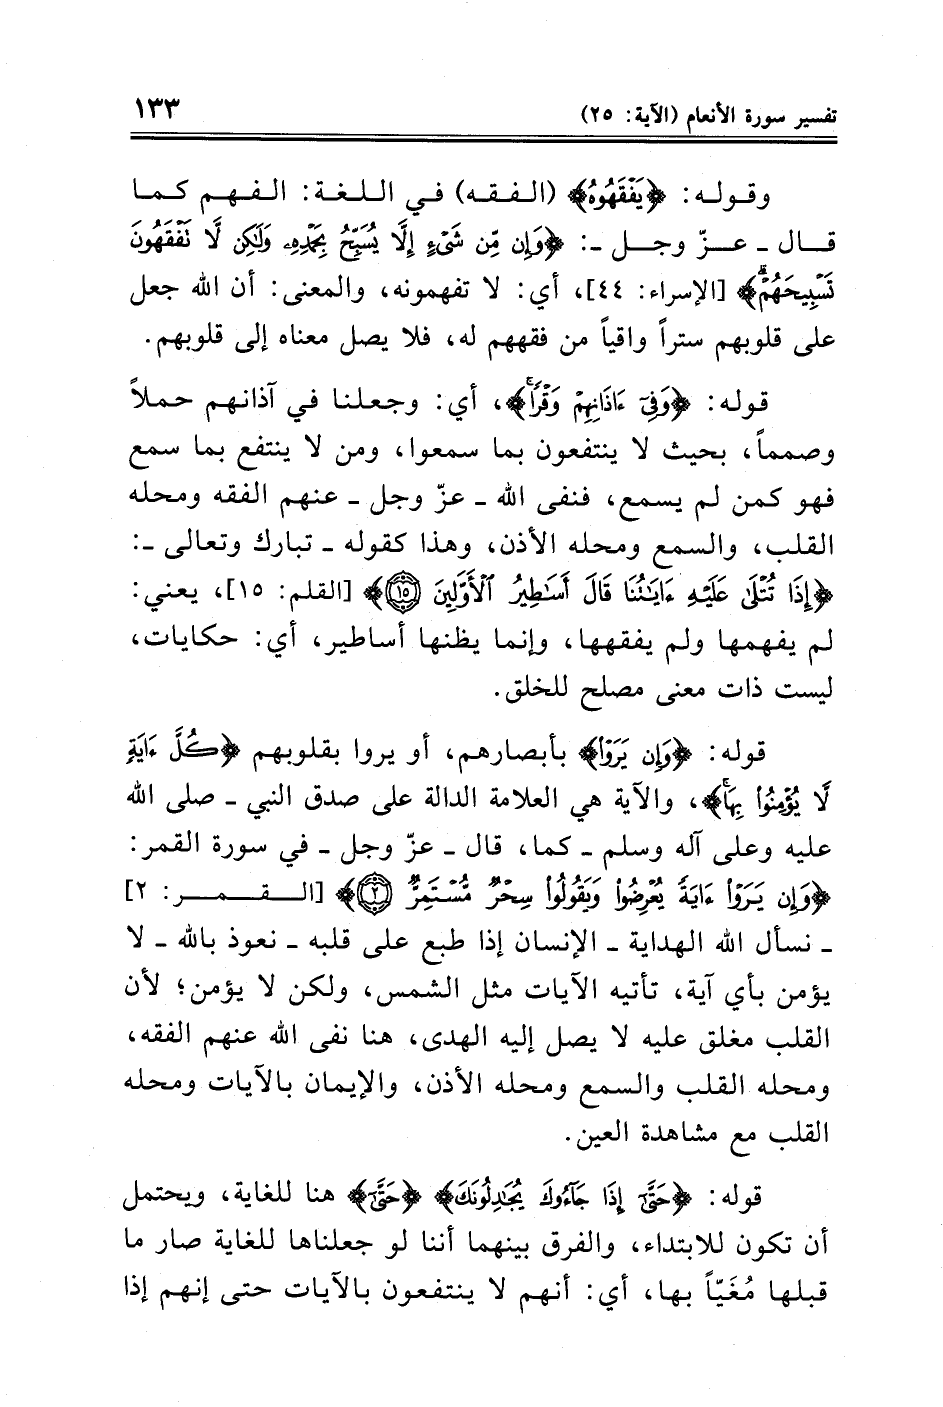 تفسير سورة الأنعام (الآية: ٢٥)
١٣٣
وقوله: ﴿يَفْقَهُوهُ﴾ (الفقه) في اللغة: الفهم كما
قال ـ عزّ وجل ـ: ﴿وَإِن مِّن شَىْءٍ إِلَّا يُسَبِّحُ بِحَمْدِهِۦ وَلَـٰكِن لَّا تَفْقَهُونَ
تَسْبِيحَهُمْۗ﴾ [الإسراء: ٤٤]، أي: لا تفهمونه، والمعنى: أن الله جعل
على قلوبهم ستراً واقياً من فقههم له، فلا يصل معناه إلى قلوبهم.
قوله: ﴿وَفِىٓ ءَاذَانِهِمْ وَقْرًاۚ﴾، أي: وجعلنا في آذانهم حملاً
وصمماً، بحيث لا ينتفعون بما سمعوا، ومن لا ينتفع بما سمع
فهو كمن لم يسمع، فنفى الله ـ عزّ وجل ـ عنهم الفقه ومحله
القلب، والسمع ومحله الأذن، وهذا كقوله ـ تبارك وتعالى ـ:
﴿إِذَا تُتْلَىٰ عَلَيْهِ ءَايَـٰتُنَا قَالَ أَسَـٰطِيرُ ٱلْأَوَّلِينَ ۝١٥﴾ [القلم: ١٥]، يعني:
لم يفهمها ولم يفقهها، وإنما يظنها أساطير، أي: حكايات،
ليست ذات معنى مصلح للخلق.
قوله: ﴿وَإِن يَرَوْا۟﴾ بأبصارهم، أو يروا بقلوبهم ﴿كُلَّ ءَايَةٍ
لَّا يُؤْمِنُوا۟ بِهَاۚ﴾، والآية هي العلامة الدالة على صدق النبي ـ صلى الله
عليه وعلى آله وسلم ـ كما، قال ـ عزّ وجل ـ في سورة القمر:
﴿وَإِن يَرَوْا۟ ءَايَةً يُعْرِضُوا۟ وَيَقُولُوا۟ سِحْرٌ مُّسْتَمِرٌّ ۝٢﴾ [القمر: ٢]
ـ نسأل الله الهداية ـ الإنسان إذا طبع على قلبه ـ نعوذ بالله ـ لا
يؤمن بأي آية، تأتيه الآيات مثل الشمس، ولكن لا يؤمن؛ لأن
القلب مغلق عليه لا يصل إليه الهدى، هنا نفى الله عنهم الفقه،
ومحله القلب والسمع ومحله الأذن، والإيمان بالآيات ومحله
القلب مع مشاهدة العين.
قوله: ﴿حَتَّىٰٓ إِذَا جَآءُوكَ يُجَـٰدِلُونَكَ﴾ ﴿حَتَّىٰٓ﴾ هنا للغاية، ويحتمل
أن تكون للابتداء، والفرق بينهما أننا لو جعلناها للغاية صار ما
قبلها مُغَيّاً بها، أي: أنهم لا ينتفعون بالآيات حتى إنهم إذا